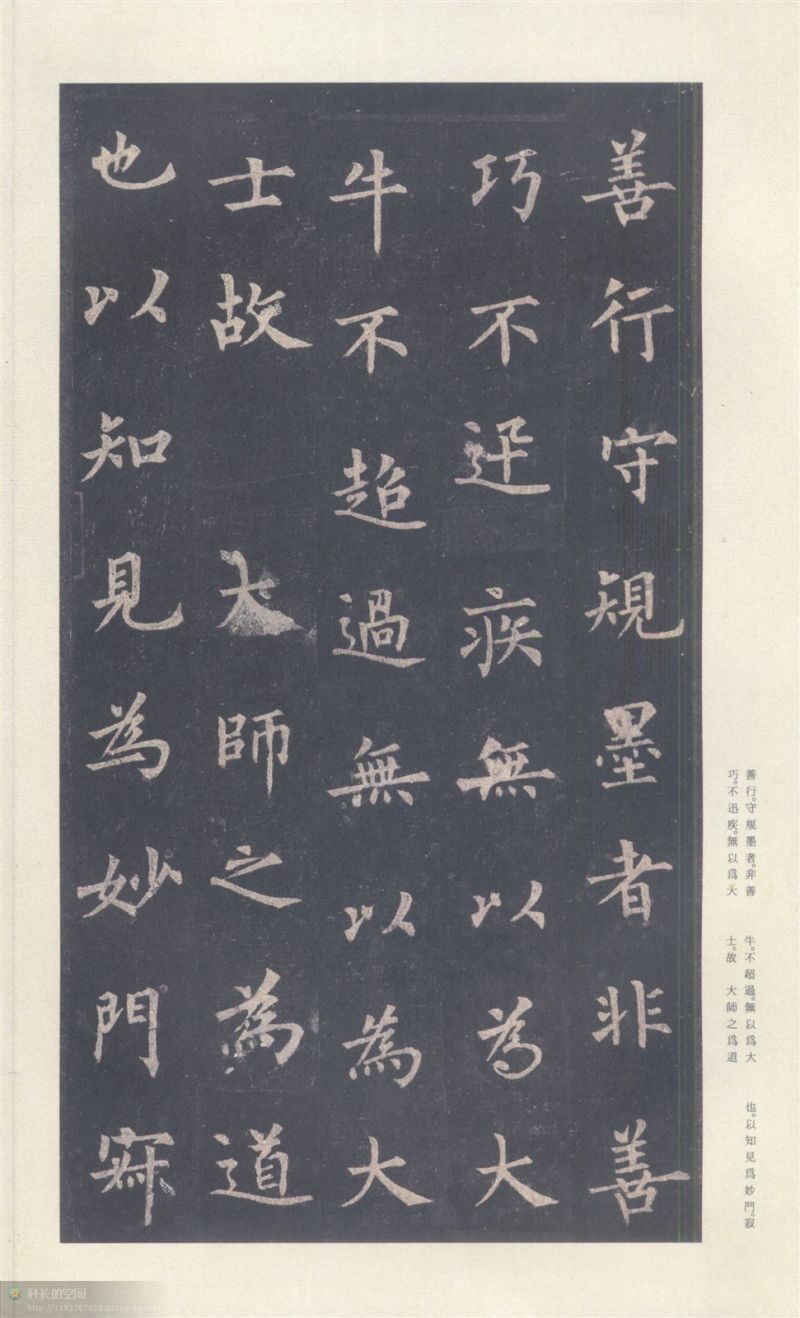 善行守規墨者非善
巧不迅疾無以為大
牛不超過無以為大
士故　大師之為道
也以知見為妙門寂
善行。守規墨者。非善
巧。不迅疾。無以爲大
牛。不超過。無以爲大
士。故　大師之爲道
也。以知見爲妙門。寂
科长的空间